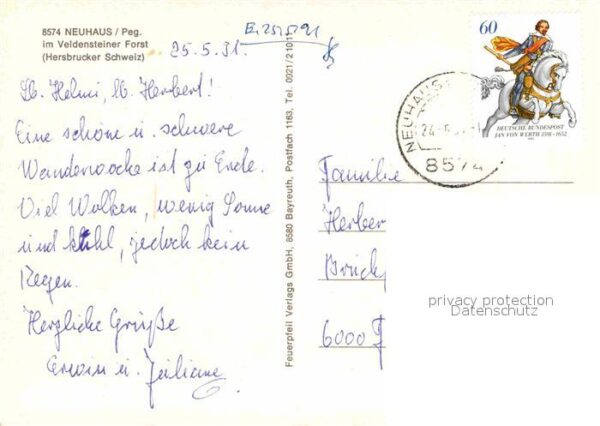 8574 NEUHAUS / Peg.
im Veldensteiner Forst
(Hersbrucker Schweiz)
E. 25.5.91
25.5.91.
Lb. Helmi, lb. Herbert!
Eine schöne u. schwere
Wanderwoche ist zu Ende.
Viel Wolken, wenig Sonne
und kühl, jedoch kein
Regen.
Herzliche Grüße
Erwin u. Juliane
Feuerpfeil Verlags GmbH, 8580 Bayreuth, Postfach 1163, Tel. 0921/21011
60
DEUTSCHE BUNDESPOST
JAN VON WERTH 1591-1652
NEUHAUS
24
8574
Familie
Herber
Brück
6000 F
privacy protection
Datenschutz